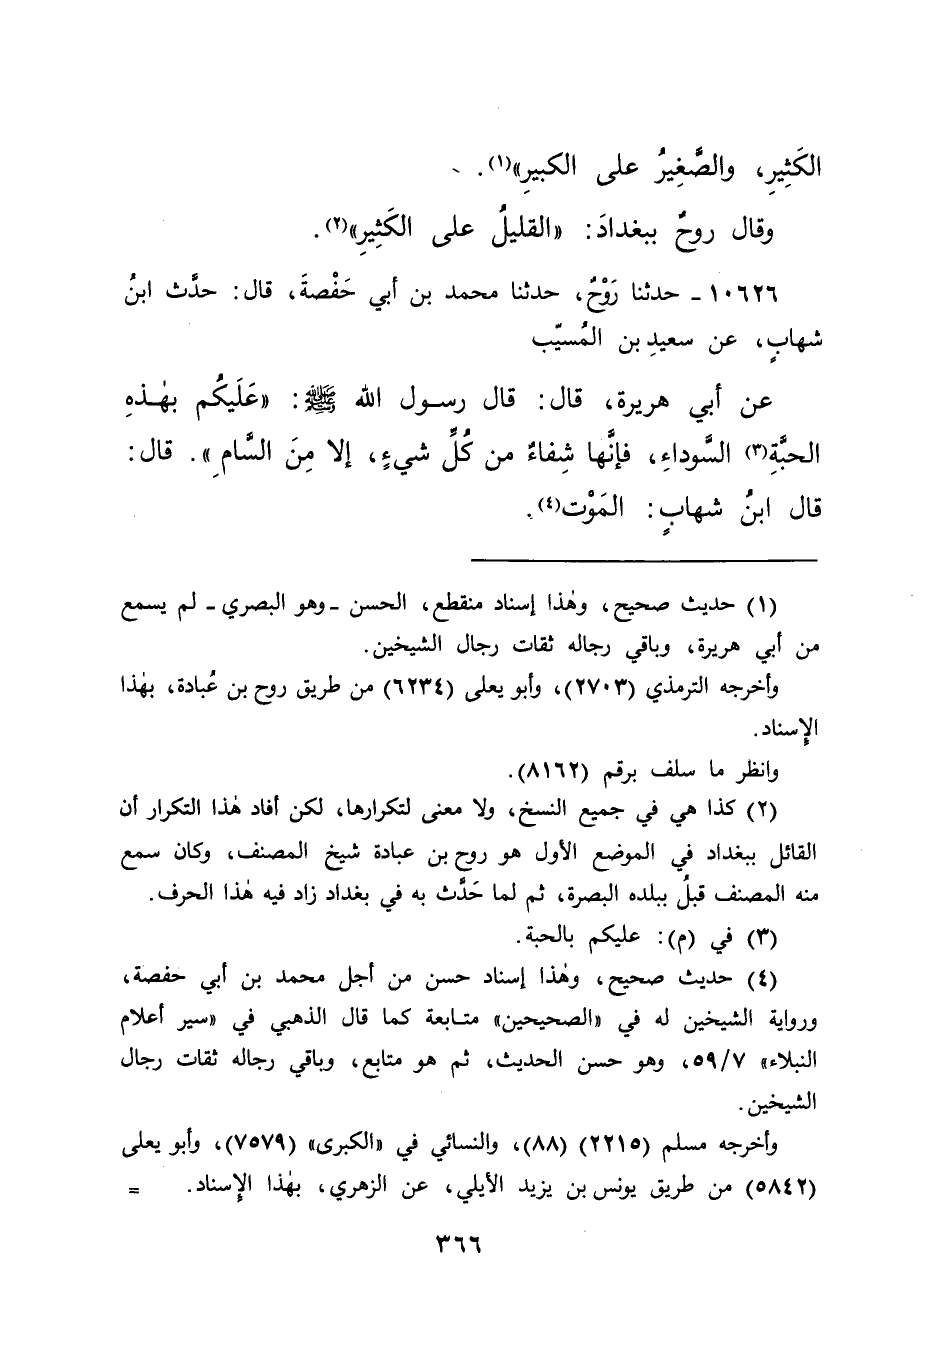 الكَثِيرِ، والصَّغِيرُ على الكبيرِ»(١).
وقال روحٌ ببغدادَ: «القليلُ على الكَثِيرِ»(٢).
١٠٦٢٦ - حدثنا رَوْحٌ، حدثنا محمد بن أبي حَفْصةَ، قال: حدَّث ابنُ
شهابٍ، عن سعيدِ بن المُسيّب
عن أبي هريرة، قال: قال رسول الله ﷺ: «عَلَيكُم بهٰذهِ
الحبَّةِ(٣) السَّوداءِ، فإنَّها شِفاءٌ من كُلِّ شيءٍ، إلا مِنَ السَّامِ». قال:
قال ابنُ شهابٍ: المَوْت(٤).
(١) حديث صحيح، وهٰذا إسناد منقطع، الحسن -وهو البصري- لم يسمع
من أبي هريرة، وباقي رجاله ثقات رجال الشيخين.
وأخرجه الترمذي (٢٧٠٣)، وأبو يعلى (٦٢٣٤) من طريق روح بن عُبادة، بهٰذا
الإِسناد.
وانظر ما سلف برقم (٨١٦٢).
(٢) كذا هي في جميع النسخ، ولا معنى لتكرارها، لكن أفاد هٰذا التكرار أن
القائل ببغداد في الموضع الأول هو روح بن عبادة شيخ المصنف، وكان سمع
منه المصنف قبلُ ببلده البصرة، ثم لما حَدَّث به في بغداد زاد فيه هٰذا الحرف.
(٣) في (م): عليكم بالحبة.
(٤) حديث صحيح، وهٰذا إسناد حسن من أجل محمد بن أبي حفصة،
ورواية الشيخين له في «الصحيحين» متابعة كما قال الذهبي في «سير أعلام
النبلاء» ٥٩/٧، وهو حسن الحديث، ثم هو متابع، وباقي رجاله ثقات رجال
الشيخين.
وأخرجه مسلم (٢٢١٥) (٨٨)، والنسائي في «الكبرى» (٧٥٧٩)، وأبو يعلى
(٥٨٤٢) من طريق يونس بن يزيد الأيلي، عن الزهري، بهٰذا الإِسناد. =
٣٦٦